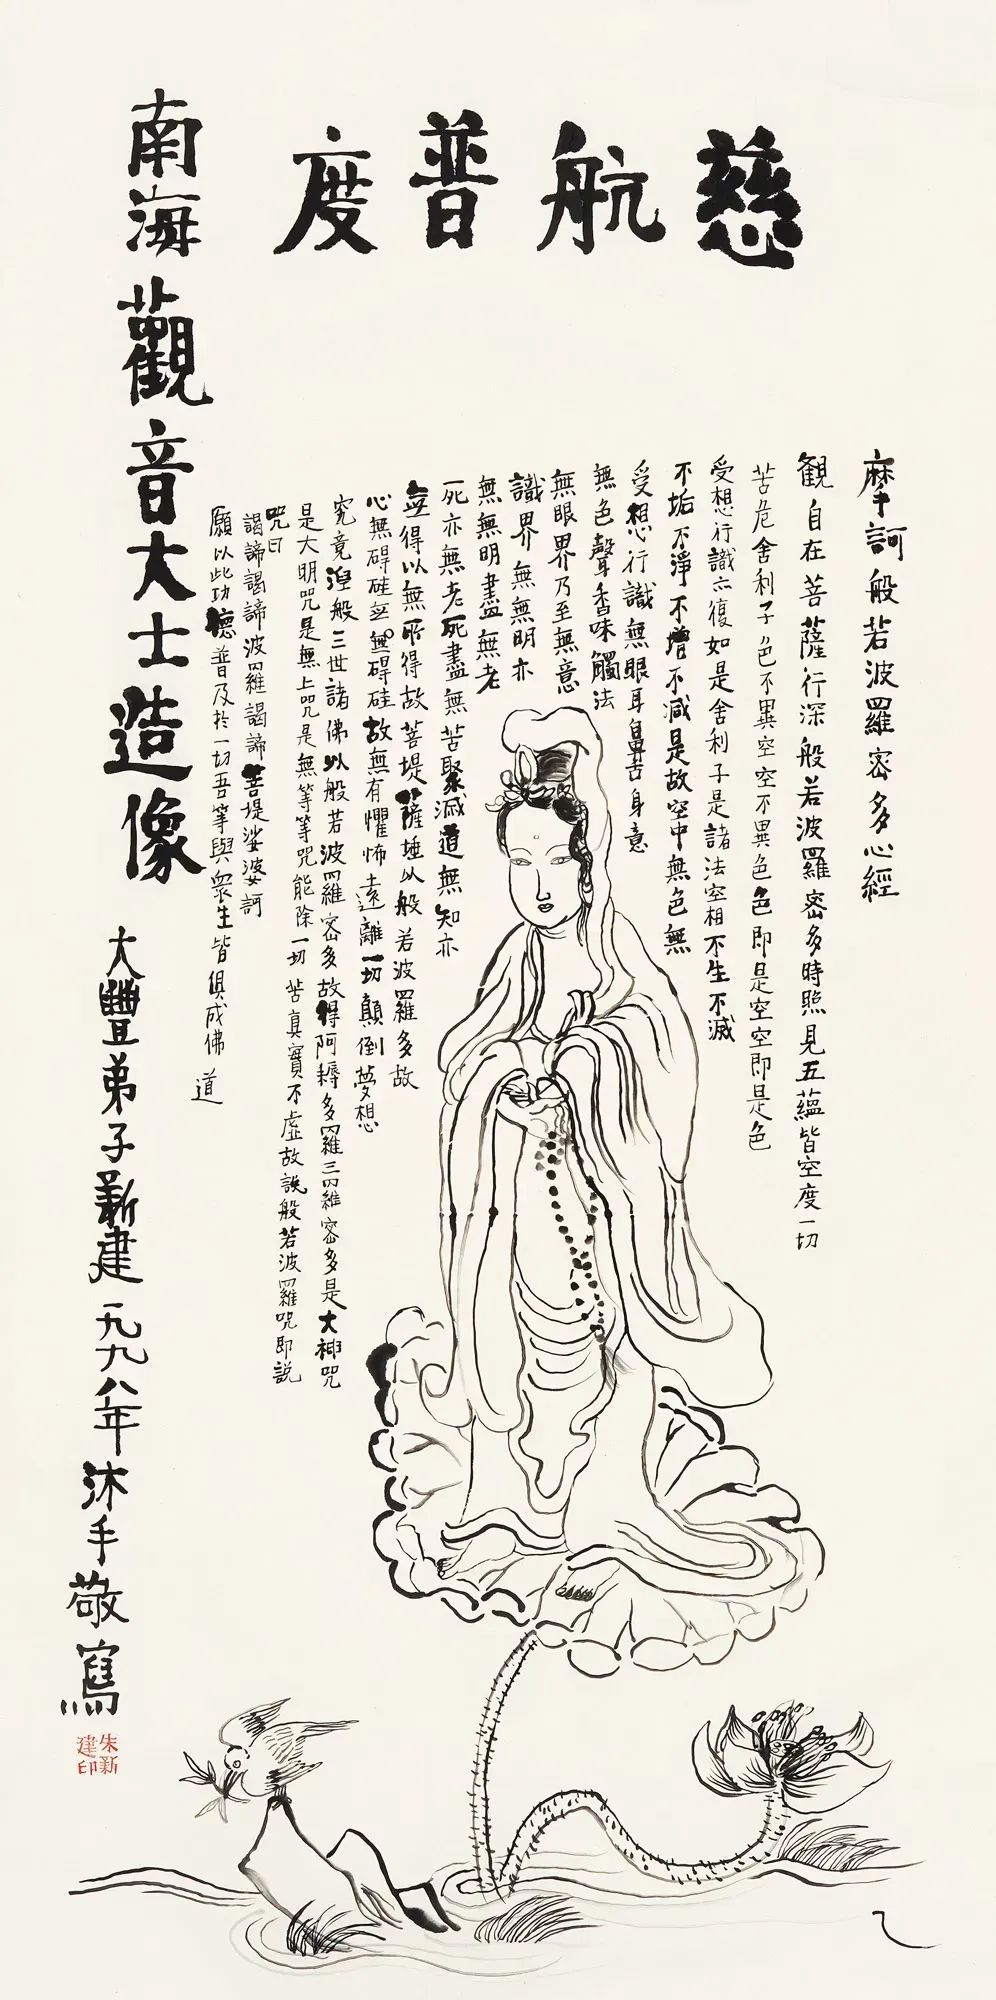 慈航普度
摩訶般若波羅密多心經
観自在菩薩行深般若波羅密多時照見五蘊皆空度一切
苦危舍利子色不異空空不異色色即是空空即是色
受想行識亦復如是舍利子是諸法空相不生不滅
不垢不淨不增不減是故空中無色無
受想行識無眼耳鼻舌身意
無色聲香味觸法
無眼界乃至無意
識界無無明亦
無無明盡無老
死亦無老死盡無苦聚滅道無知亦
無得以無所得故菩堤薩埵以般若波羅多故
心無碍硅無無碍硅故無有懼怖遠離一切顛倒夢想
究竟涅般三世諸佛以般若波羅密多故得阿耨多羅三羅密多是大神咒
是大明咒是無上咒是無等等咒能除一切苦真實不虛故説般若波羅咒即説
咒曰
謁諦謁諦波羅謁諦菩堤娑婆訶
願以此功德普及扵一切吾等與衆生皆俱成佛道
南海觀音大士造像
大豐弟子新建一九九八年沐手敬寫
朱新建印